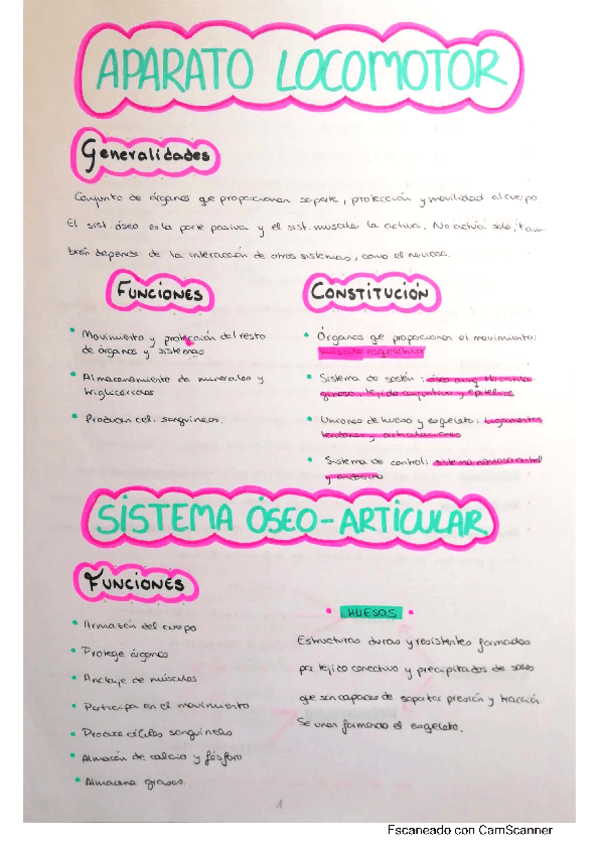 APARATO LOCOMOTOR
Generalidades
Conjunto de órganos que proporcionan soporte, protección y movilidad al cuerpo.
El sist. óseo es la parte pasiva y el sist. muscular la activa. No actúa solo, tam
bién depende de la interacción de otros sistemas, como el nervioso.
FUNCIONES
• Movimiento y protección del resto
de órganos y sistemas
• Almacenamiento de minerales y
triglicéridos
• Producen cél. sanguíneas.
CONSTITUCIÓN
• Órganos que proporcionan el movimiento:
músculo esquelético
• Sistema de sostén: óseo
conjuntivo y epitelial
• Uniones de hueso y esqueleto: ligamentos
tendones y articulaciones
• Sistema de control: sistema nervioso central
y endocrino
SISTEMA ÓSEO-ARTICULAR
FUNCIONES
• Armazón del cuerpo
• Protege órganos
• Anclaje de músculos
• Participa en el movimiento
• Produce células sanguíneas
• Almacén de calcio y fósforo
• Almacena grasas.
• HUESOS •
Estructuras duras y resistentes formadas
por tejido conectivo y precipitados de sales
que son capaces de soportar presión y tracción
Se unen formando el esqueleto.
1
Escaneado con CamScanner